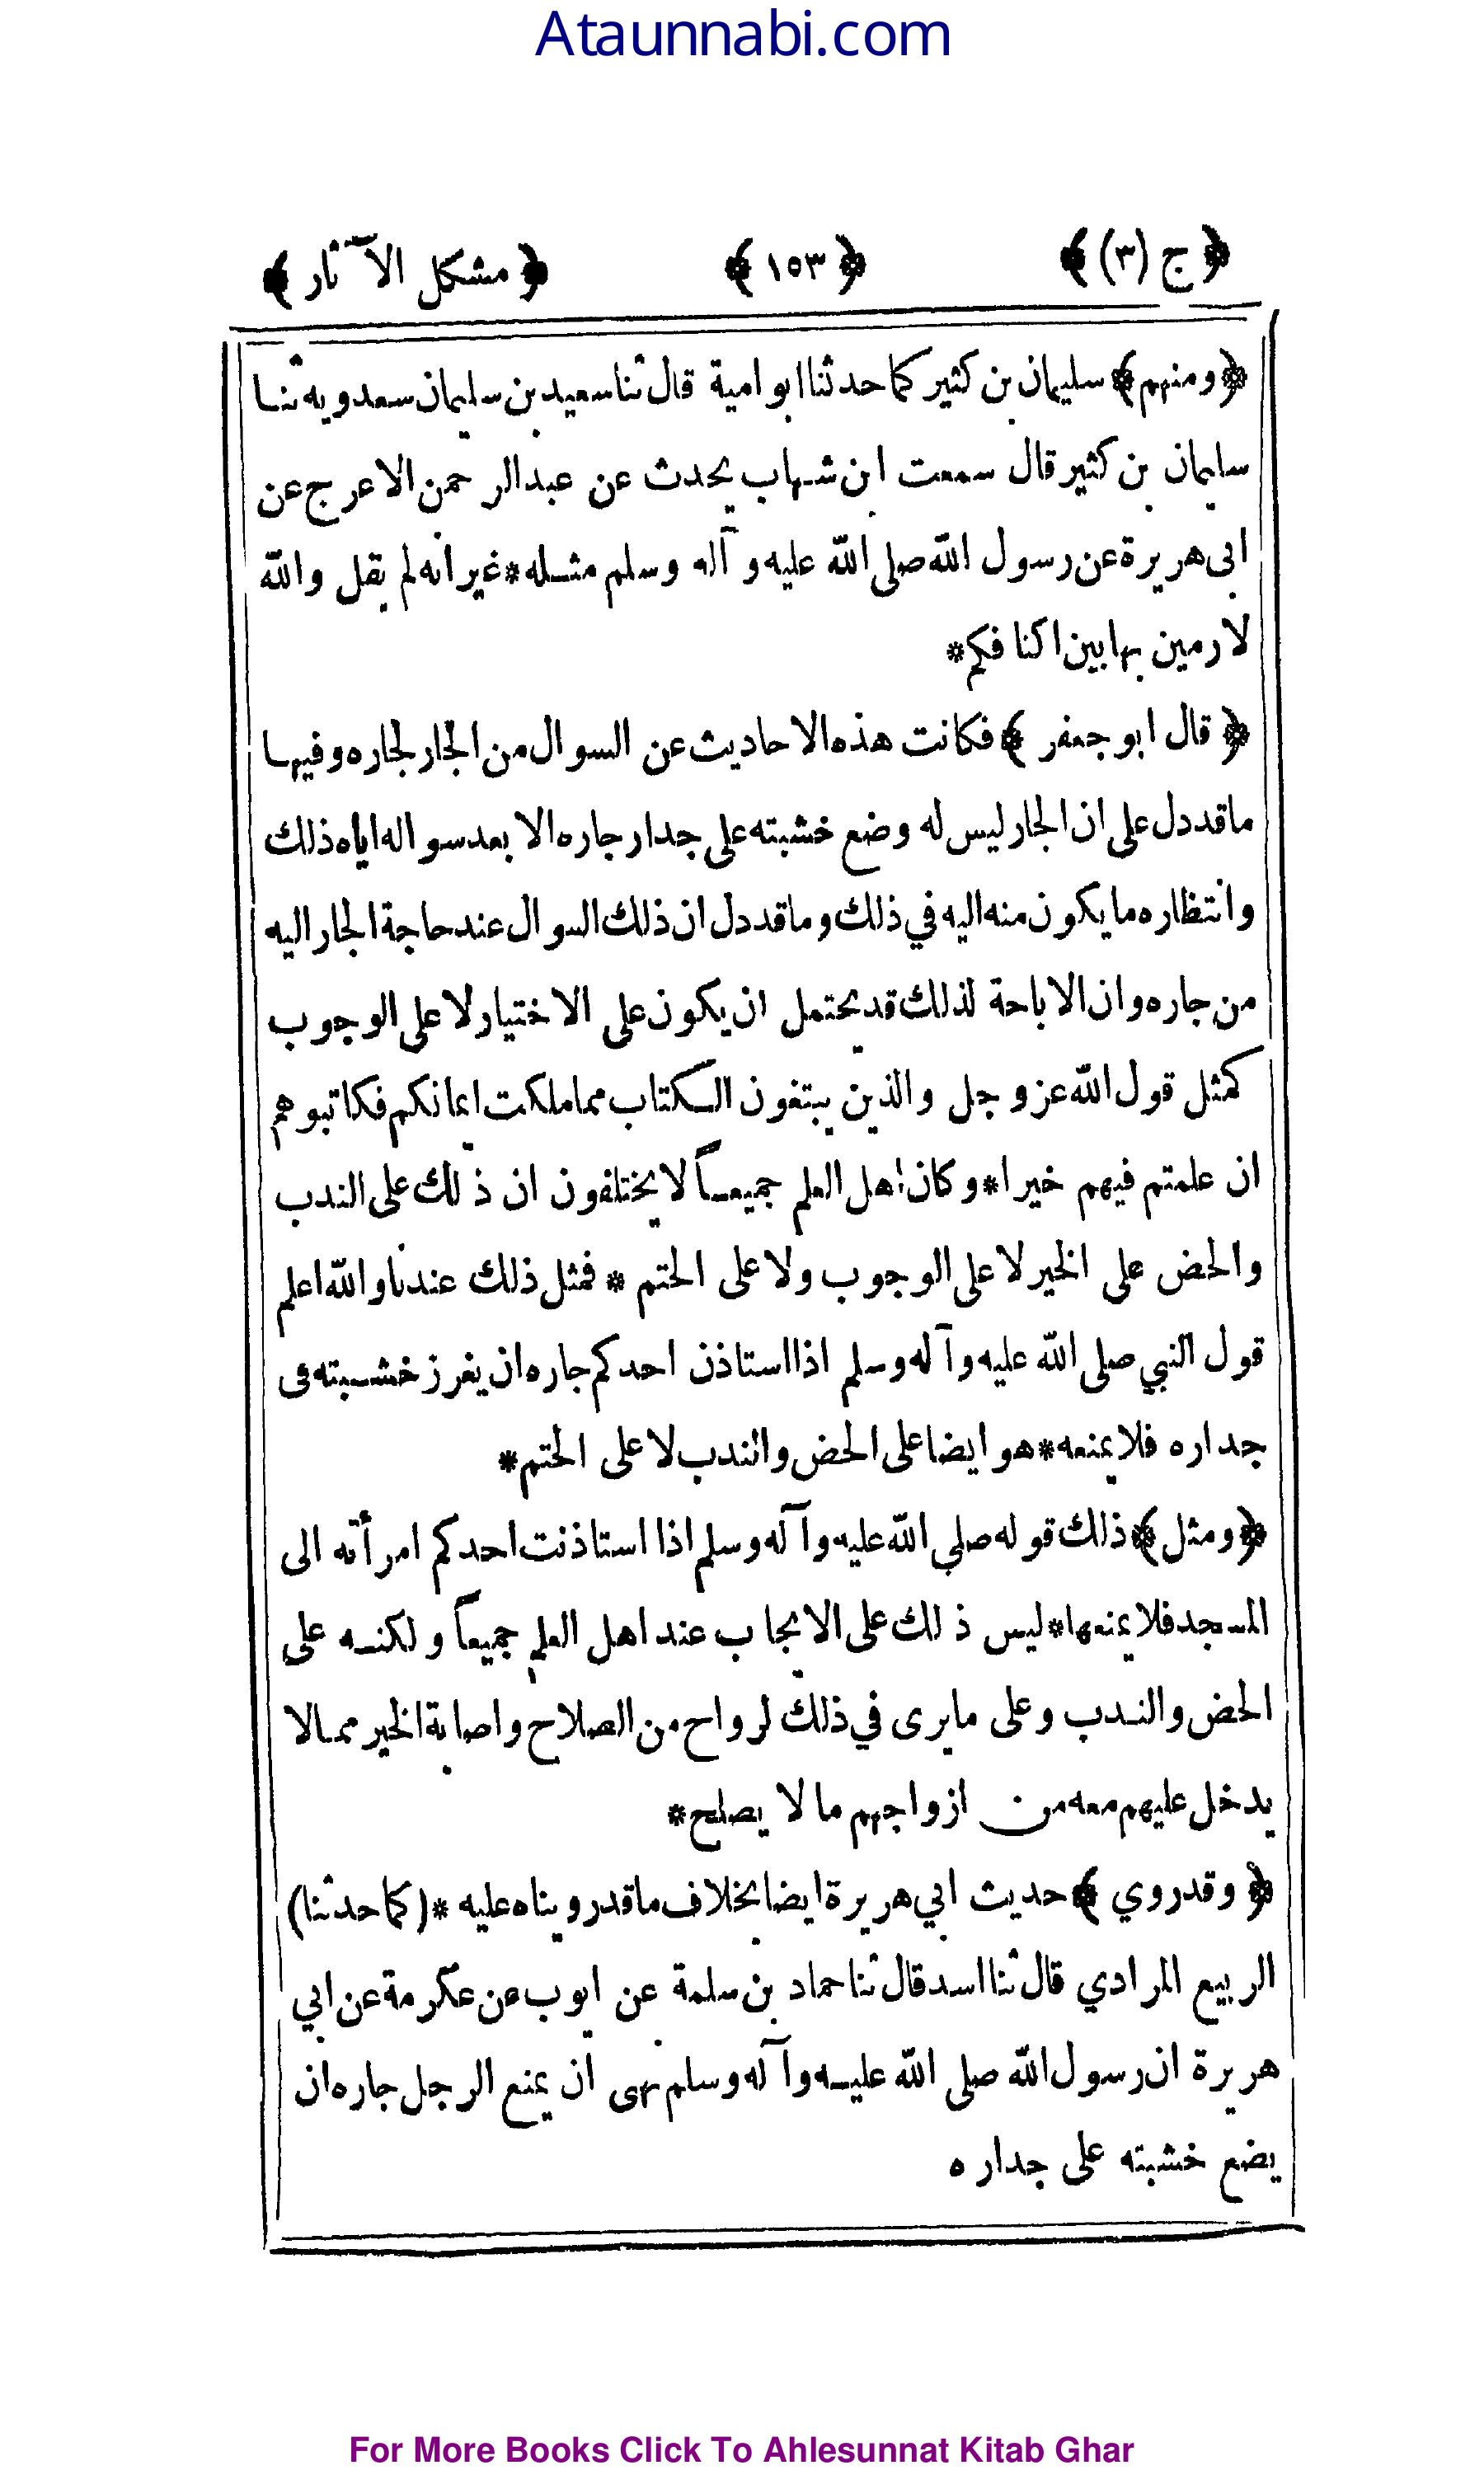 Ataunnabi.com
﴿ ج (٣) ﴾ ﴿ ١٥٣ ﴾ ﴿ مشكل الآثار ﴾
﴿ ومنهم ﴾ سليمان بن كثير كما حدثنا ابو امية قال ثنا سعيد بن سليمان سعدويه ثنا
سليمان بن كثير قال سمعت ابن شهاب يحدث عن عبد الرحمن الاعرج عن
ابى هريرة عن رسول الله صلى الله عليه و آله وسلم مثله * غير انه لم يقل والله
لارمين بها بين اكنافكم *
﴿ قال ابو جعفر ﴾ فكانت هذه الاحاديث عن السوال من الجار لجاره وفيها
ماقد دل على ان الجار ليس له وضع خشبته على جدار جاره الا بعد سواله اياه ذلك
وانتظاره ما يكون منه اليه في ذلك وماقد دل ان ذلك السوال عند حاجة الجار اليه
من جاره وان الاباحة لذلك قد يحتمل ان يكون على الاختيار لا على الوجوب
كمثل قول الله عز وجل والذين يبتغون الكتاب مما ملكت ايمانكم فكاتبوهم
ان علمتم فيهم خيرا * وكان اهل العلم جميعاً لا يختلفون ان ذلك على الندب
والحض على الخير لا على الوجوب ولا على الحتم * فمثل ذلك عندنا والله اعلم
قول النبي صلى الله عليه وآله وسلم اذا استاذن احدكم جاره ان يغرز خشبته فى
جداره فلا يمنعه * هو ايضا على الحض والندب لا على الحتم *
﴿ ومثل ﴾ ذلك قوله صلى الله عليه وآله وسلم اذا استاذنت احدكم امرأته الى
المسجد فلا يمنعها * ليس ذلك على الايجاب عند اهل العلم جميعاً ولكنه على
الحض والندب وعلى مايرى في ذلك لرواح من الصلاح واصابة الخير مما لا
يدخل عليهم معه من ازواجهم ما لا يصلح *
﴿ وقد روي ﴾ حديث ابي هريرة ايضا بخلاف ماقد رويناه عليه * (كما حدثنا)
الربيع المرادي قال ثنا اسد قال ثنا حماد بن سلمة عن ايوب عن عكرمة عن ابي
هريرة ان رسول الله صلى الله عليه وآله وسلم نهى ان يمنع الرجل جاره ان
يضع خشبته على جداره
For More Books Click To Ahlesunnat Kitab Ghar